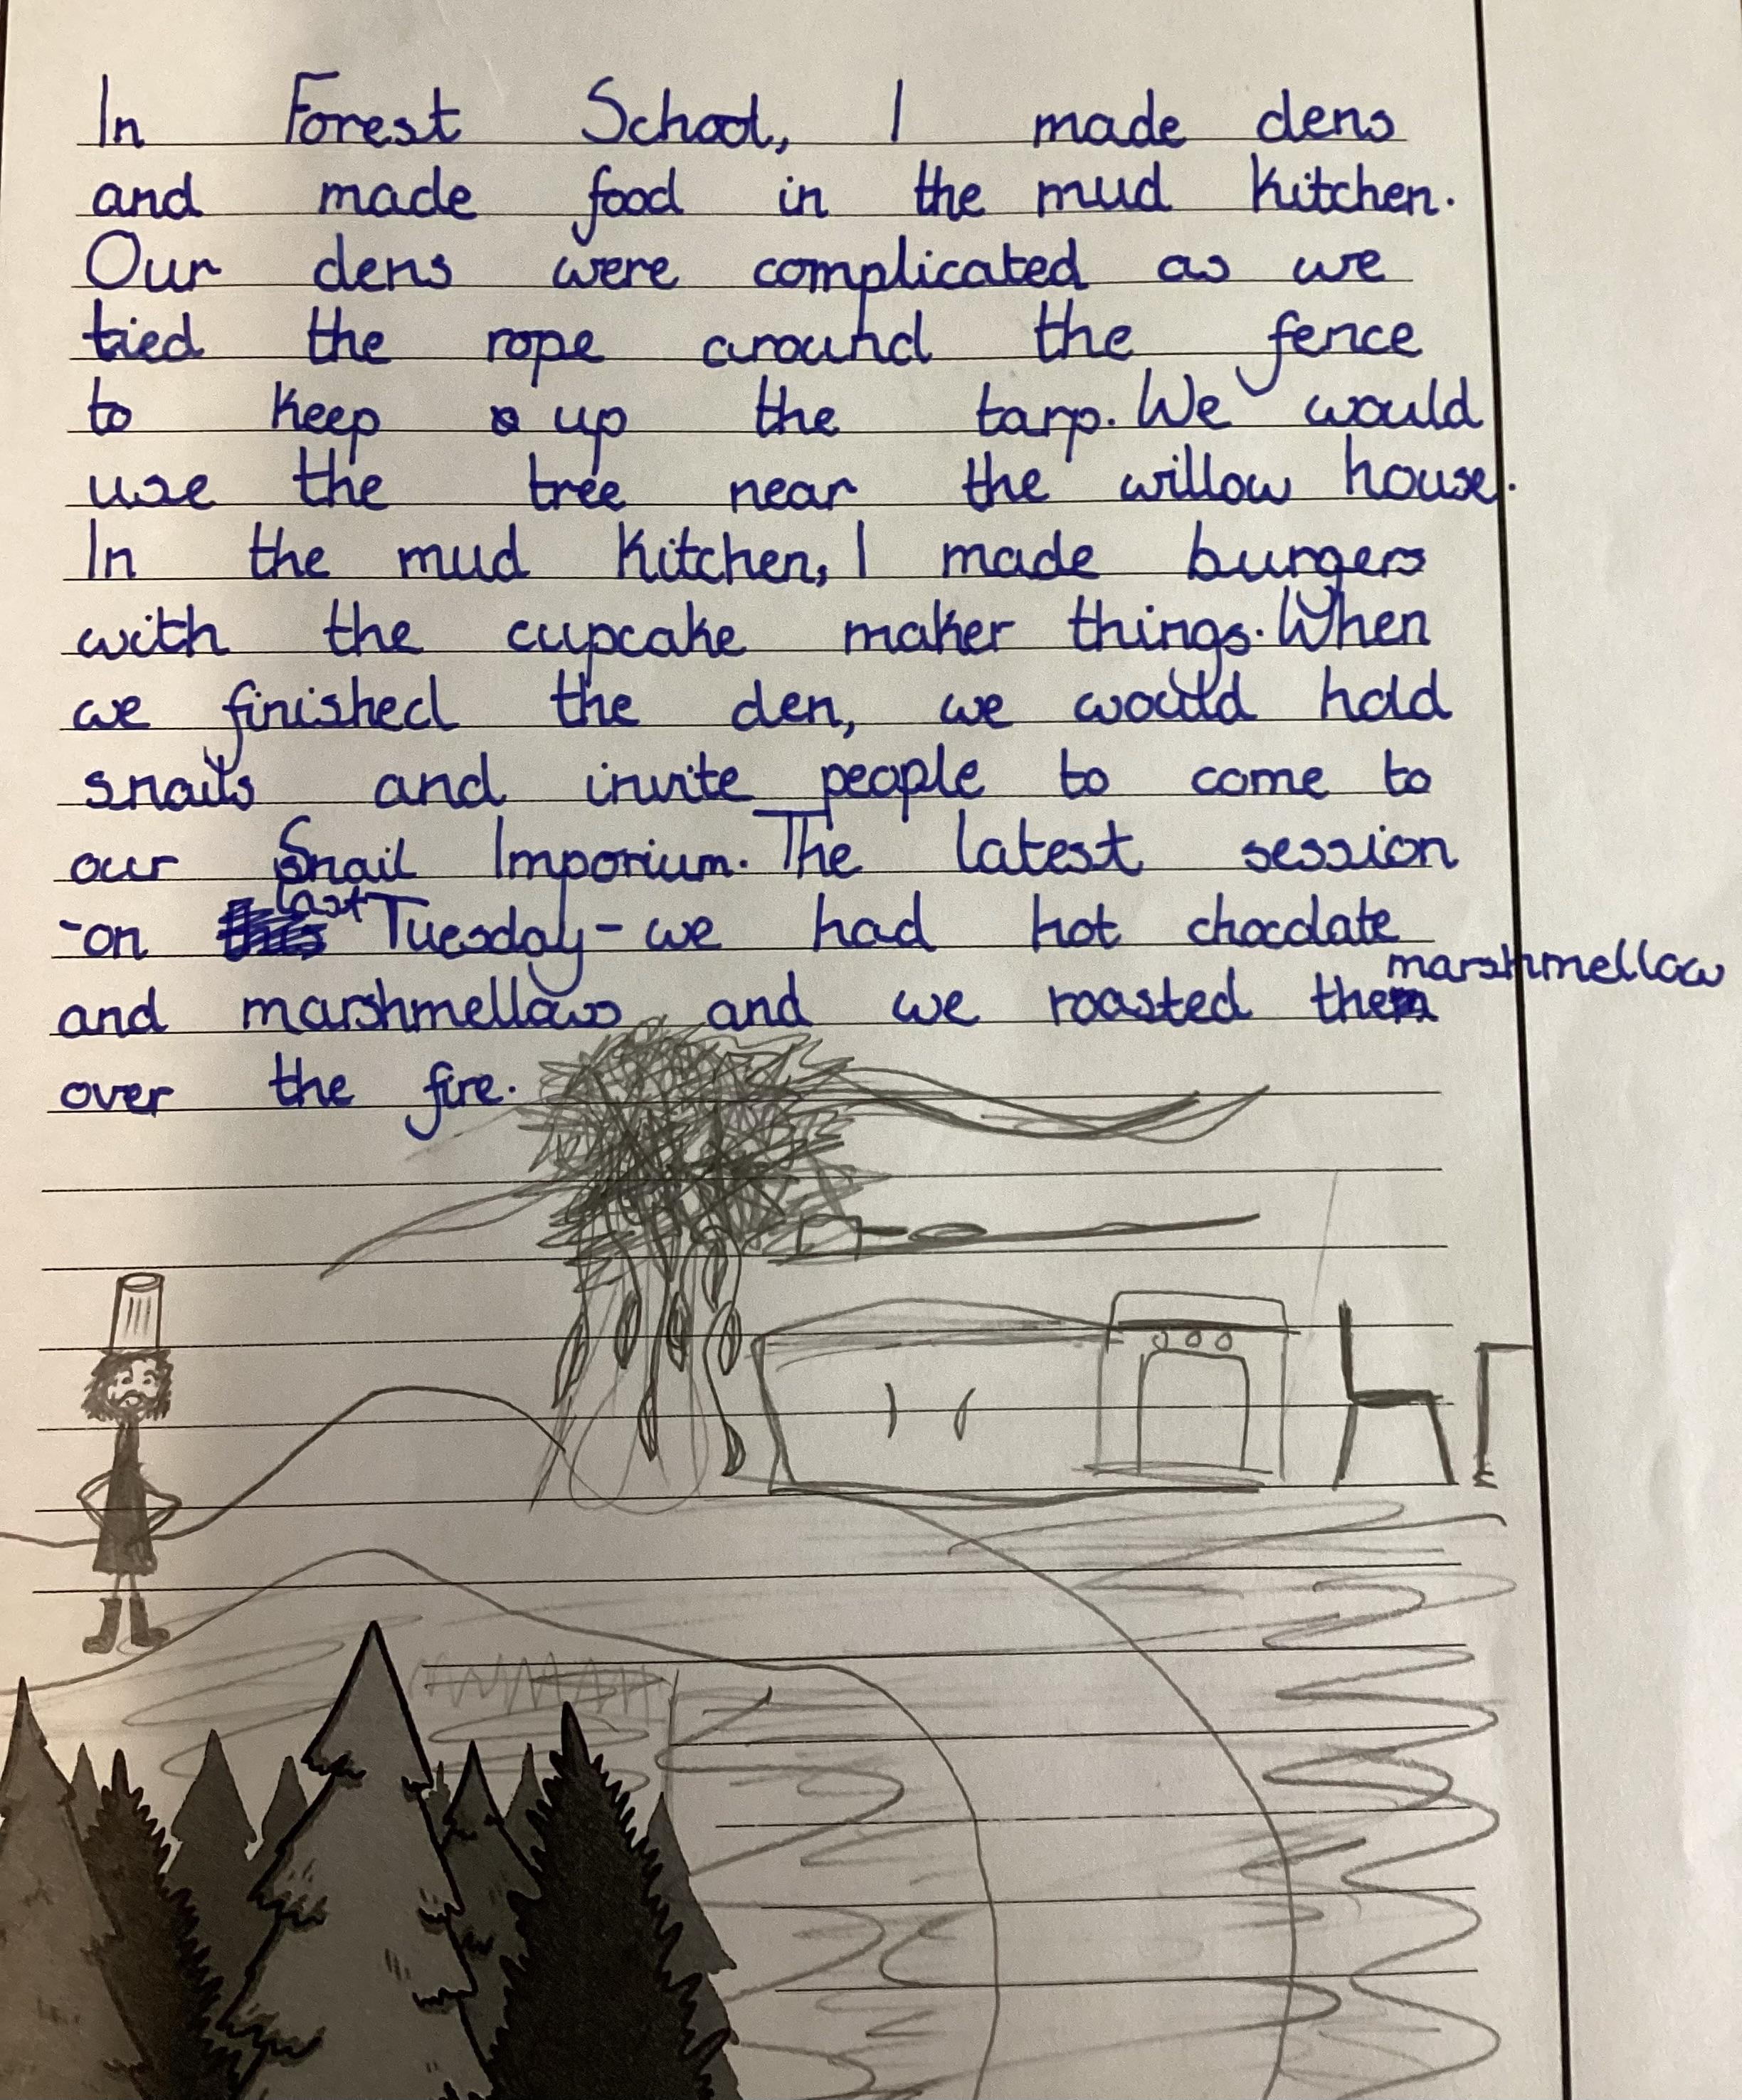 In Forest School, I made dens
and made food in the mud kitchen.
Our dens were complicated as we
tied the rope around the fence
to keep up the tarp. We would
use the tree near the willow house.
In the mud kitchen, I made burgers
with the cupcake maker things. When
we finished the den, we would hold
snails and invite people to come to
our Snail Imporium. The latest session
-on last Tuesday- we had hot chocolate
and marshmellows and we roasted the marshmellow
over the fire.